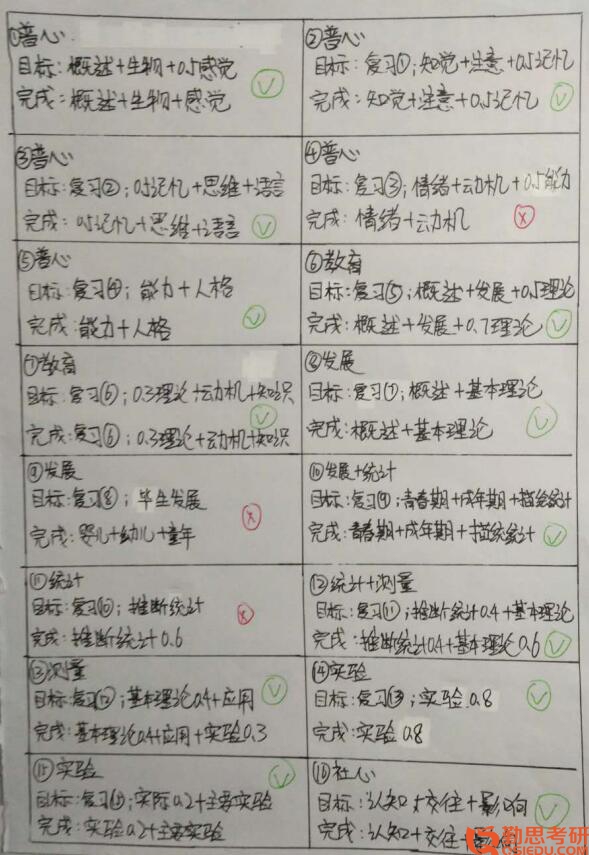 ①普心
目标：概述+生物+0.5感觉
完成：概述+生物+感觉
②普心
目标：复习①；知觉+注意+0.5记忆
完成：知觉+注意+0.5记忆
③普心
目标：复习②；0.5记忆+思维+语言
完成：0.5记忆+思维+语言
④普心
目标：复习③；情绪+动机+0.5能力
完成：情绪+动机
⑤普心
目标：复习④；能力+人格
完成：能力+人格
⑥教育
目标：复习⑤；概述+发展+0.5理论
完成：概述+发展+0.7理论
⑦教育
目标：复习⑥；0.3理论+动机+知识
完成：复习⑥；0.3理论+动机+知识
⑧发展
目标：复习⑦；概述+基本理论
完成：概述+基本理论
⑨发展
目标：复习⑧；毕生发展
完成：婴儿+幼儿+童年
⑩发展+统计
目标：复习⑨；青春期+成年期+描统统计
完成：青春期+成年期+描统统计
⑪统计
目标：复习⑩；推断统计
完成：推断统计0.6
⑫统计+测量
目标：复习⑪；推断统计0.4+基本理论
完成：推断统计0.4+基本理论0.6
⑬测量
目标：复习⑫；基本理论0.4+应用
完成：基本理论0.4+应用+实验0.3
⑭实验
目标：复习⑬；实验0.8
完成：实验0.8
⑮实验
目标：复习⑭；实际0.2+主要实验
完成：实验0.2+主要实验
⑯社心
目标：认知+交往+影响
完成：认知+交往+
勤思考研
QSIEDU.COM